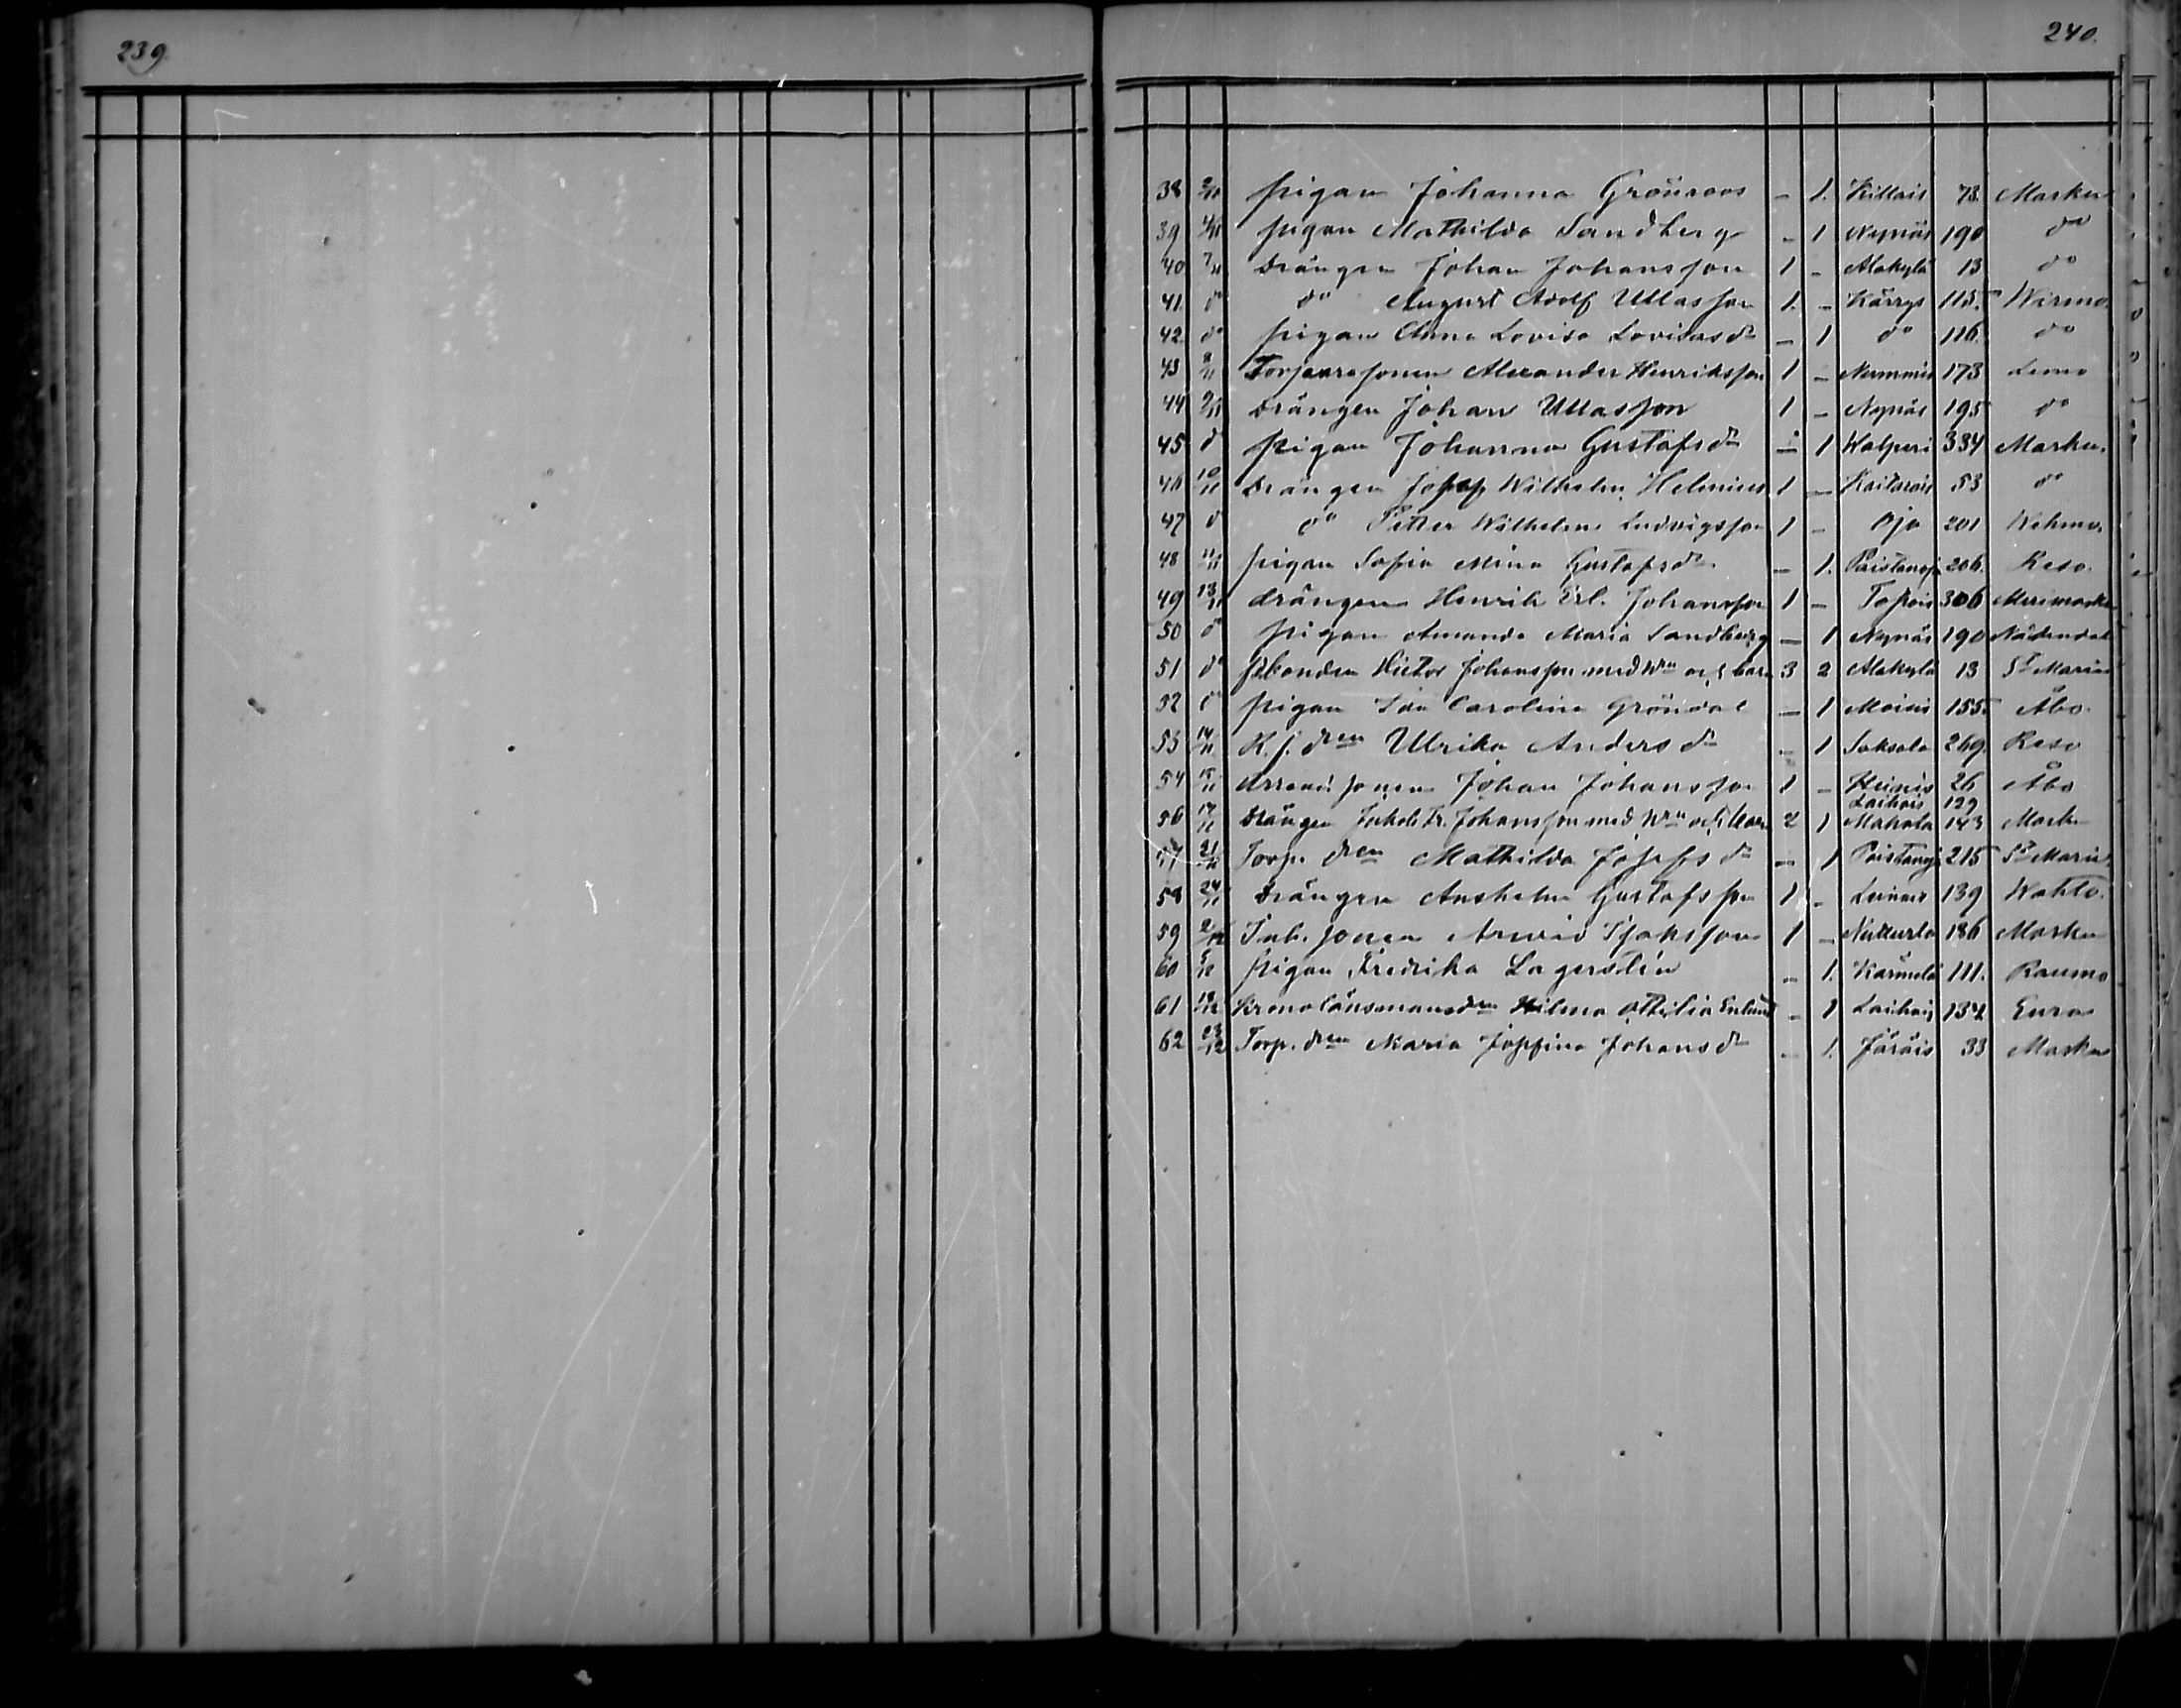 239
240.
38 2/11 pigan Johanna Grönroos – 1. Killais 73. Masku
39 4/11 pigan Mathilda Sandberg – 1 Nynäs 190 do
40 7/11 Drängen Johan Johansson 1 – Alakylä 13 do
41. do do August Adolf Ullasson 1. – Kärrys 115. Wirmo.
42. do pigan Anna Lovisa Lovisasdr – 1 do 116. do
43 8/11 Torparesonen Alexander Henriksson 1 – Nummis 173 Lemo
44 9/11 Drängen Johan Ullasson 1 – Nynäs 195 do
45 do pigan Johanna Gustafsdr – 1 Walperi 334 Masku.
46 10/11 Drängen Josef Wilhelm Helenius 1 – Kaitarais 53 do
47 do do Petter Wilhelm Ludvigsson 1 – Oja 201 Wehmo.
48 11/11 pigan Sofia Mina Gustafsdr. – 1. Paistanoja 206. Reso.
49 13/11 drängen Henrik Erl. Johansson 1 – Topois 306 Merimasku
50 do pigan Amanda Maria Sandberg – 1 Nynäs 190 Nådendal
51 do bonden Victor Johansson med hru och barn 3 2 Alakylä 13 St Marie
52 do pigan Ida Carolina Gröndal – 1 Moisis 155. Åbo.
53 14/11 dren Ulrika Andersdr – 1 Saksala 269. Reso
54 15/11 Arrend. sonen Johan Johansson 1 – Heinis 26 Åbo
Laihois 129
56 17/11 Drängen Jakob Fr. Johansson med hru och barn 2 1 Mahala 143 Masku
57 21/11 Torp. dren Mathilda Josefsdr – 1 Paistanoja 215 St Marie
58 24/11 Drängen Anshelm Gustafsson 1 – Leinais 139 Wahto.
59 2/12 Inh. sonen Arvid Isaksson 1 – Nikkurla 186 Masku
60 5/12 pigan Fredrika Lagersten – 1. Karinela 111. Raumo
61 19/12 Kronolänsmansdren Hilma Ottilia Enlund – 1 Laihois 132 Eura
62 23/12 Torp. dren Maria Josefina Johansdr – 1. Järäis 33 Masku